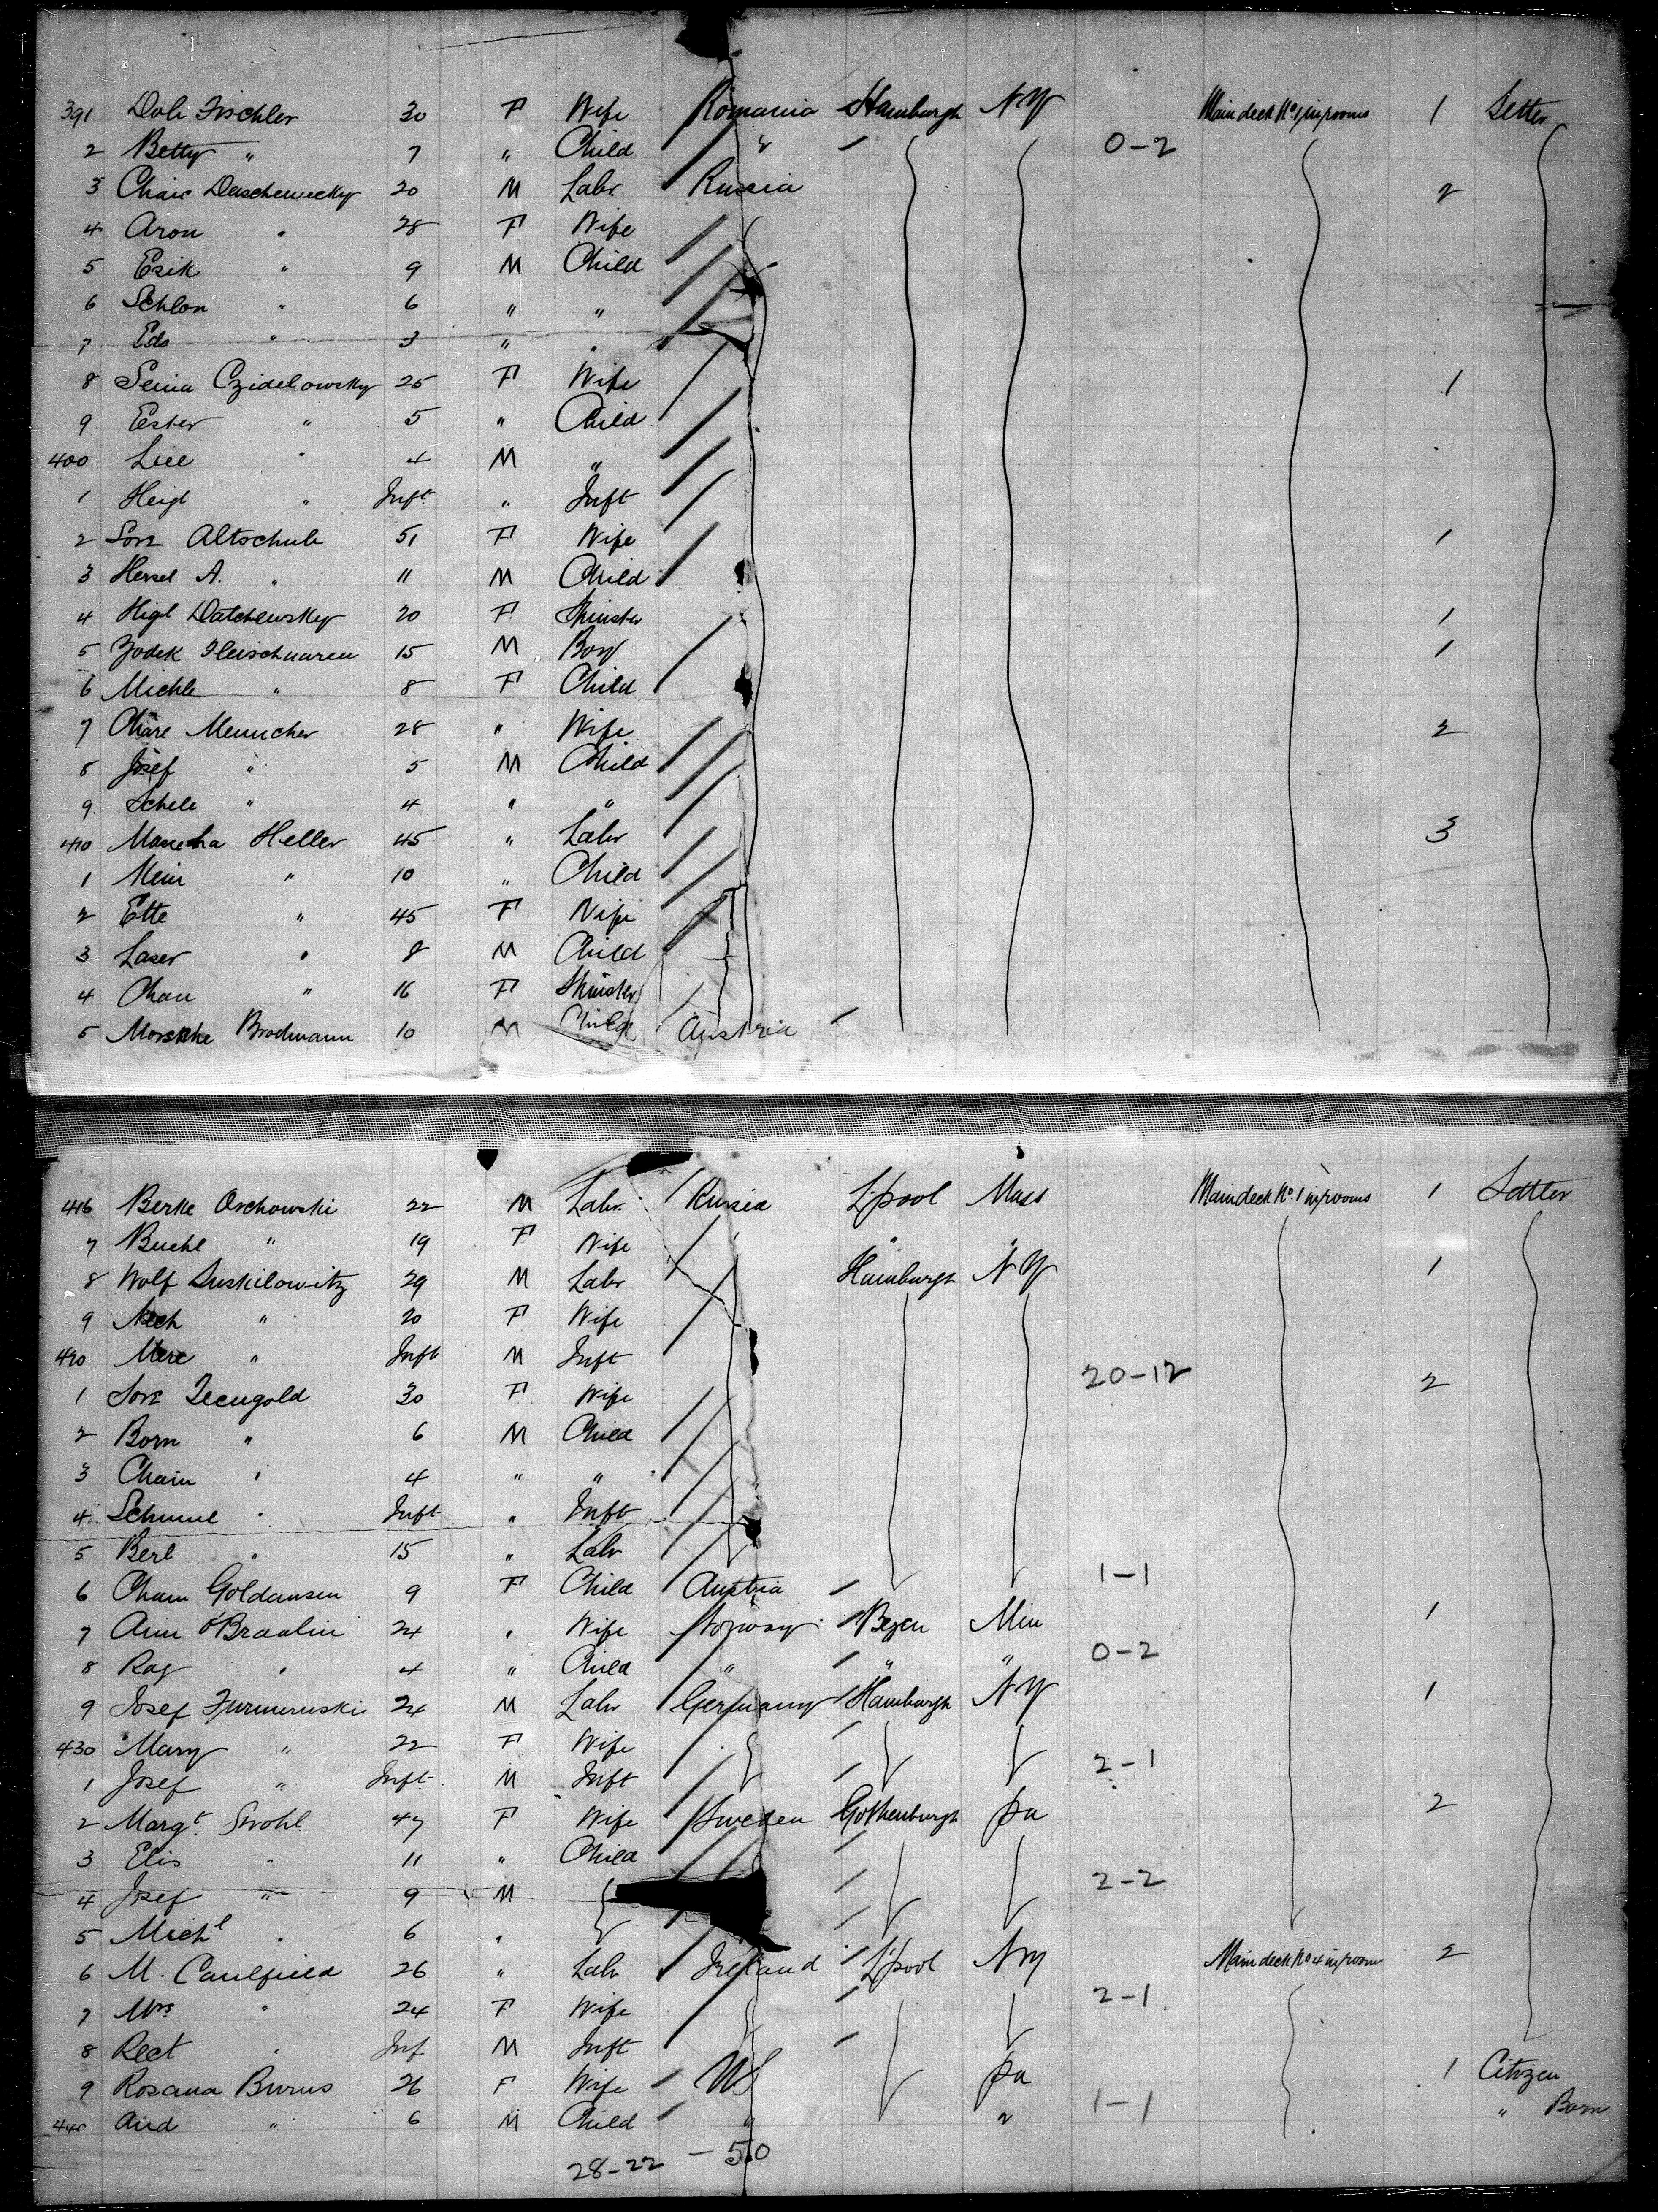 391 Dob Fischler 30 F Wife Romania Hamburgh NY Main deck No. 1 in/rooms 1 Settler
2 Betty " 7 " Child " 0-2
3 Chaie Daschewecky 20 M Labr Russia 2
4 Aron " 28 F Wife
5 Esik " 9 M Child
6 Schlon " 6 " "
7 Edo " 3 " "
8 Czidelowsky 25 F Wife 1
9 Ester " 5 " Child
400 " 4 M "
1 Heigl " Inft " Inft
2 Sore Altschule 51 F Wife 1
3 Hersel A. " 11 M Child
4 Higl Datchewsky 20 F Spinster 1
5 Zodek 15 M Boy 1
6 Michle " 8 F Child
7 Chare Menucher 28 " Wife 2
8 Josef " 5 M Child
9 Schele " 4 " "
410 Heller 45 " Labr 3
1 Meir " 10 " Child
2 Ette " 45 F Wife
3 Laser " 8 M Child
4 Chan " 16 F Spinster
5 Brodmann 10 M Child Austria
416 Berke Orchowski 22 M Labr Russia L'pool Mass Main deck No. 1 in/rooms 1 Settler
7 Buchl " 19 F Wife " "
8 Wolf Suskilowitz 29 M Labr Hamburgh NY 1
9 Nech " 20 F Wife
420 Mere " Inft M Inft 20-12
1 Sore 30 F Wife 2
2 Born " 6 M Child
3 Chain " 4 " "
4 Schmul " Inft " Inft
5 Berl " 15 " Labr
6 Cham Goldansen 9 F Child Austria 1-1
7 Ann O'Braalin 24 " Wife Norway Begen Min 1
8 Rag " 4 " Child " " " 0-2
9 Josef 24 M Labr Germany Hamburgh NY 1
430 Mary " 22 F Wife
1 Josef " Inft M Inft 2-1
2 Margt. Strohl 47 F Wife Sweden Gothenburgh pa 2
3 Elis " 11 " Child
4 Josef " 9 M 2-2
5 Michl " 6 "
6 M. Caulfield 26 " Labr Ireland L'pool NY Main deck No 4 in/room 2
7 Mrs " 24 F Wife 2-1
8 Rect " Inf M Inft
9 Rosana Burns 26 F Wife US pa 1 Citizen
440 And " 6 M Child " " 1-1 " Born
28-22 - 50